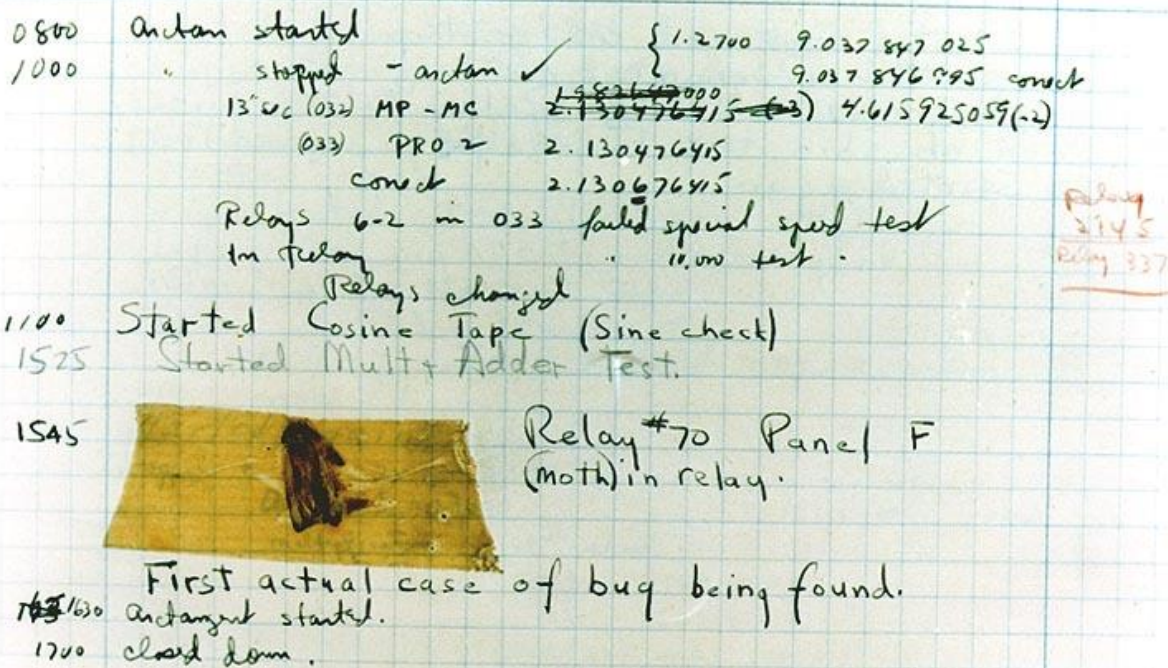 0800 antan started { 1.2700 9.037 847 025
1000 " stopped - antan ✓ 9.037 846 795 conect
13" uc (032) MP - MC 1.982647000 2.130476415 (-3) 4.615925059(-2)
(033) PRO 2 2.130476415
conect 2.130676415
Relays 6-2 in 033 failed special speed test
In Relay " 10,000 test.
Relays changed
Relay
2145
Relay 337
1100 Started Cosine Tape (Sine check)
1525 Started Mult+ Adder Test.
1545 Relay #70 Panel F
(moth) in relay.
First actual case of bug being found.
1630 antangent started.
1700 closed down.